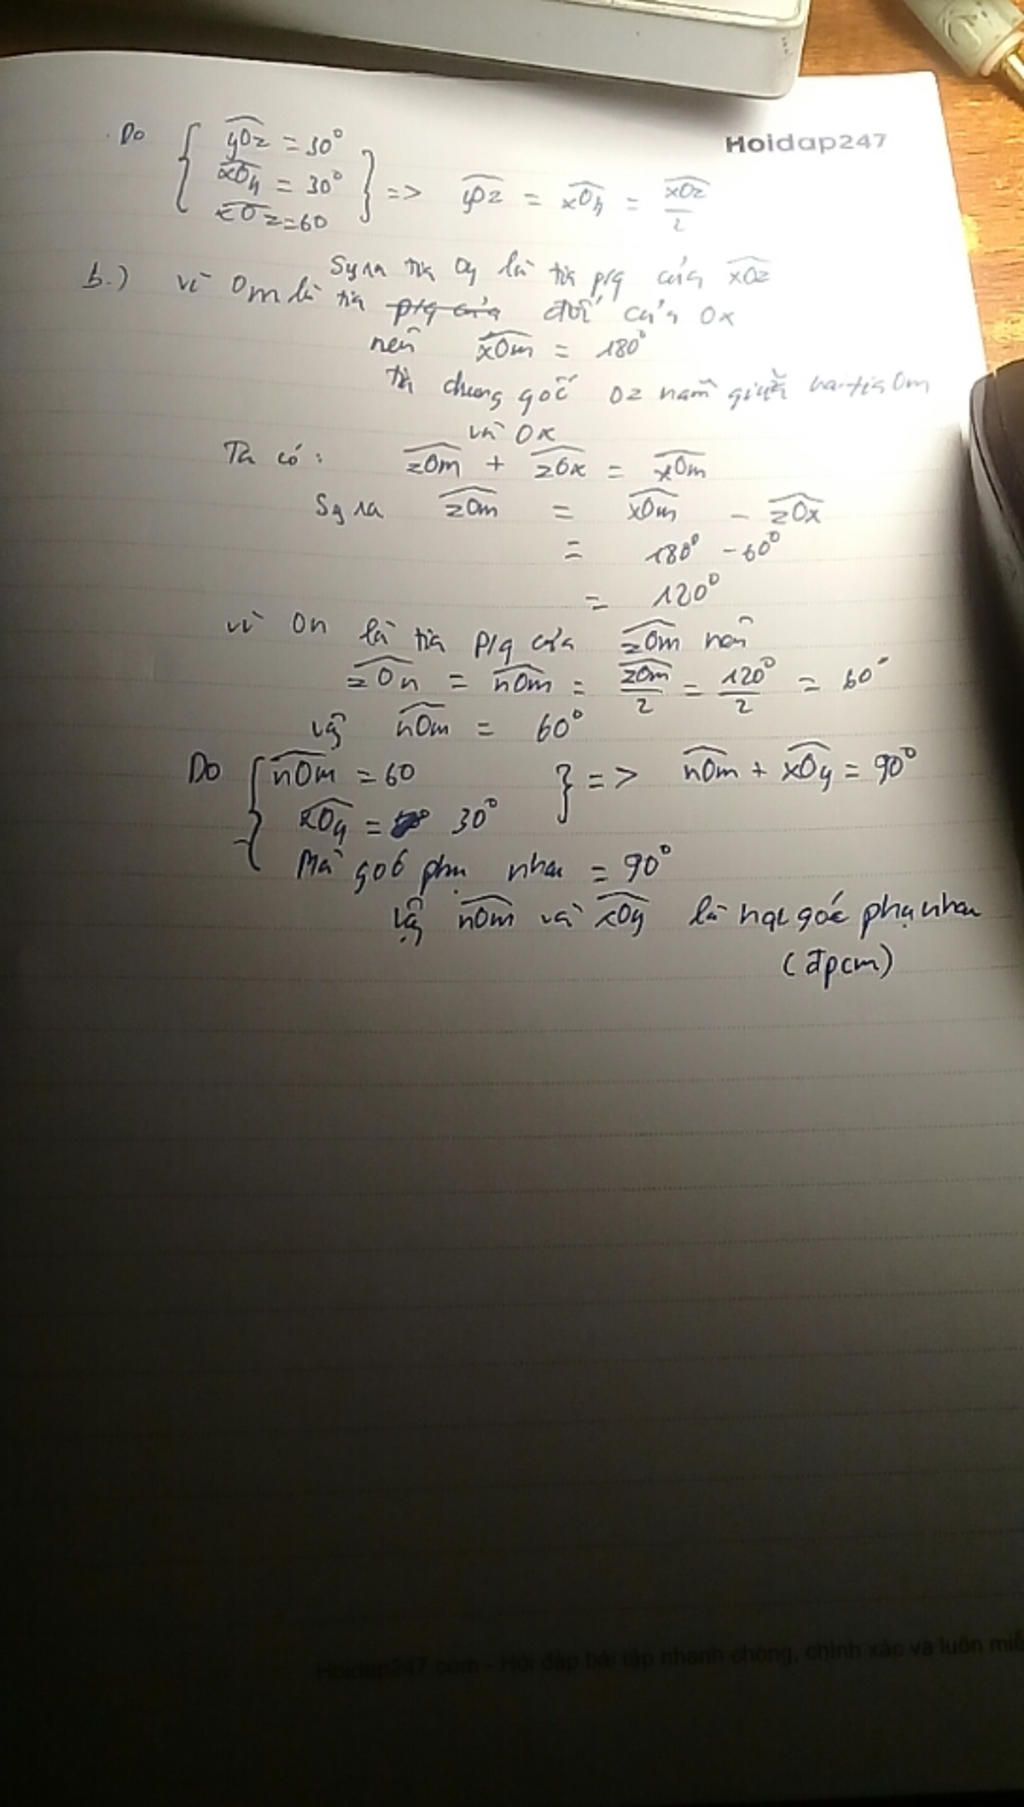 Hoidap247
Do { yOz = 30°
xOy = 30° } => yOz = xOy = xOz/2
xOz = 60
Suy ra tia Oy là tia p/g của xOz
b.) vì Om là tia p/g của đối của Ox
nên xOm = 180°
tia chung gốc Oz nằm giữa hai tia Om
và Ox
Ta có: zOm + zOx = xOm
Suy ra zOm = xOm - zOx
= 180° - 60°
= 120°
vì On là tia p/g của zOm nên
zOn = nOm = zOm/2 = 120°/2 = 60°
vậy nOm = 60°
Do { nOm = 60 } => nOm + xOy = 90°
xOy = 30°
Mà góc phụ nhau = 90°
vậy nOm và xOy là hai góc phụ nhau
(đpcm)
Hoidap247.com - Hỏi đáp bài tập nhanh chóng, chính xác và luôn miễ